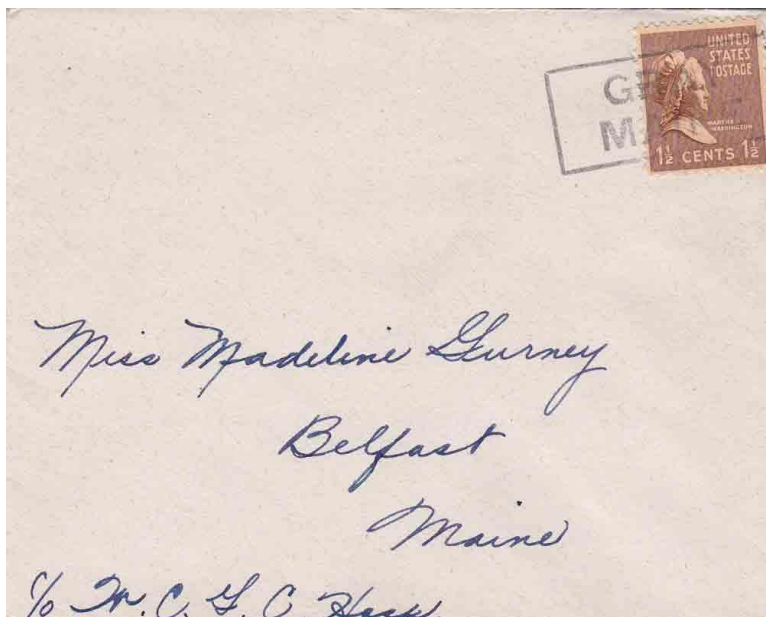 UNITED
STATES
POSTAGE
MARTHA
WASHINGTON
1½ CENTS 1½
Miss Madeline Gurney
Belfast
Maine
c/o